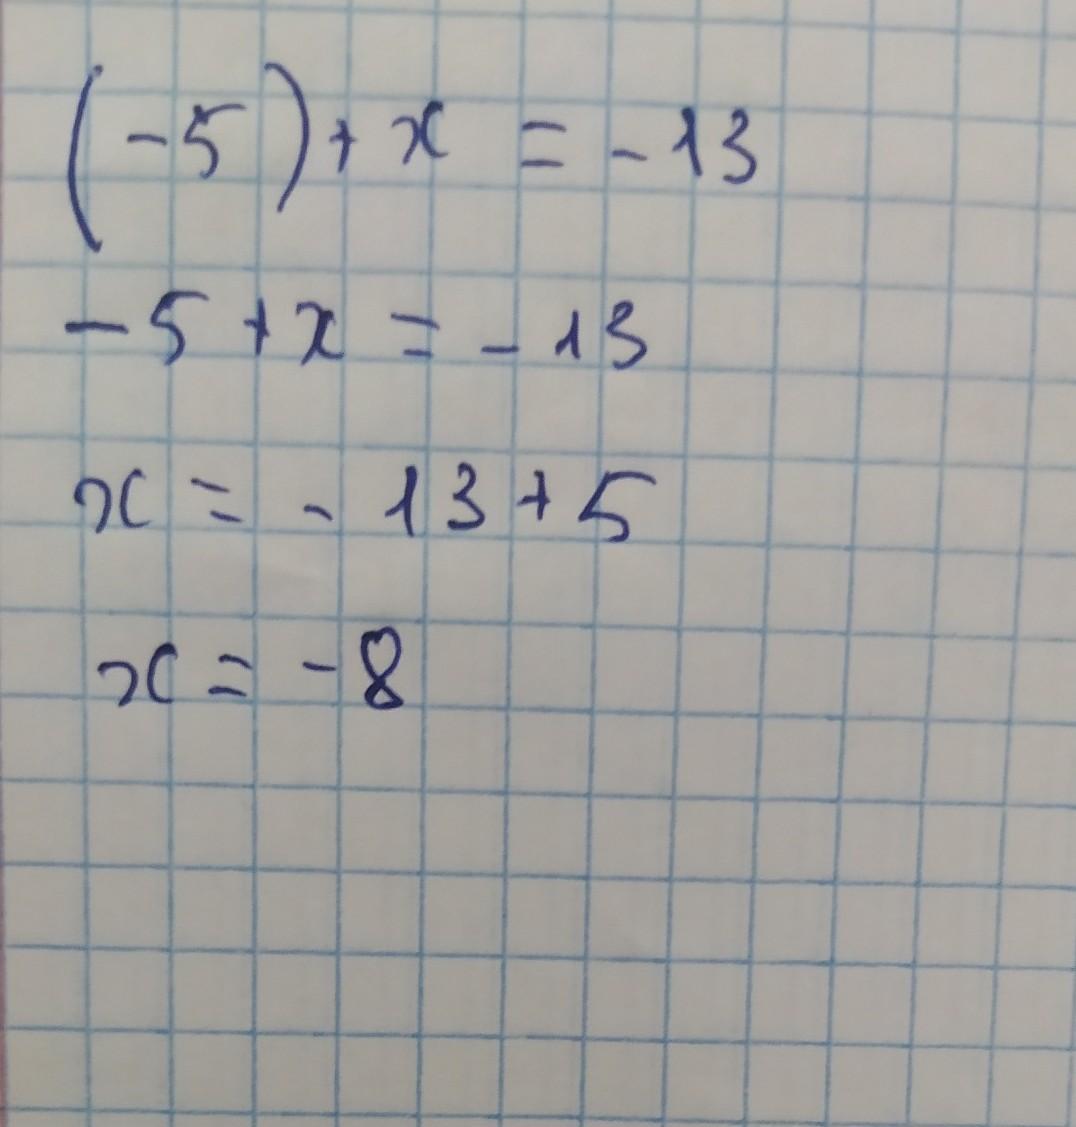 (-5) + x = -13
-5 + x = -13
x = -13 + 5
x = -8